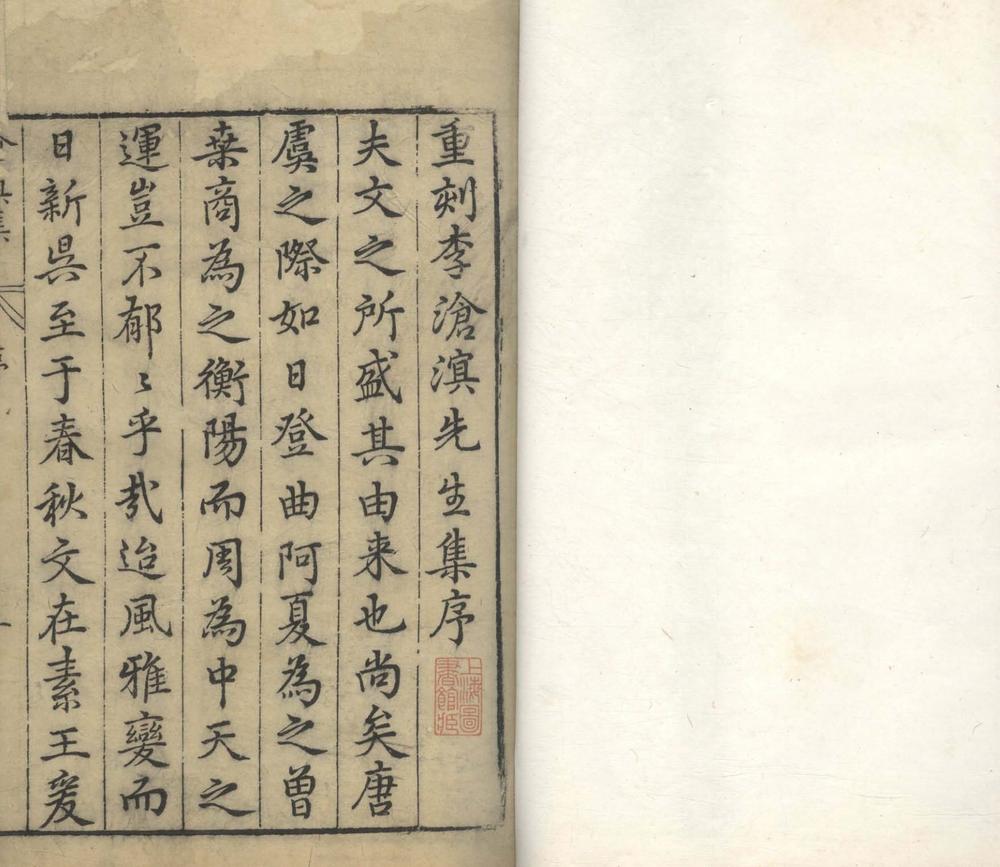 重刻李滄溟先生集序
上海圖書館藏
夫文之所盛其由来也尚矣唐
虞之際如日登曲阿夏為之曾
桒商為之衡陽而周為中天之
運豈不郁〻乎㢤迨風雅變而
日新吳至于春秋文在素王爰